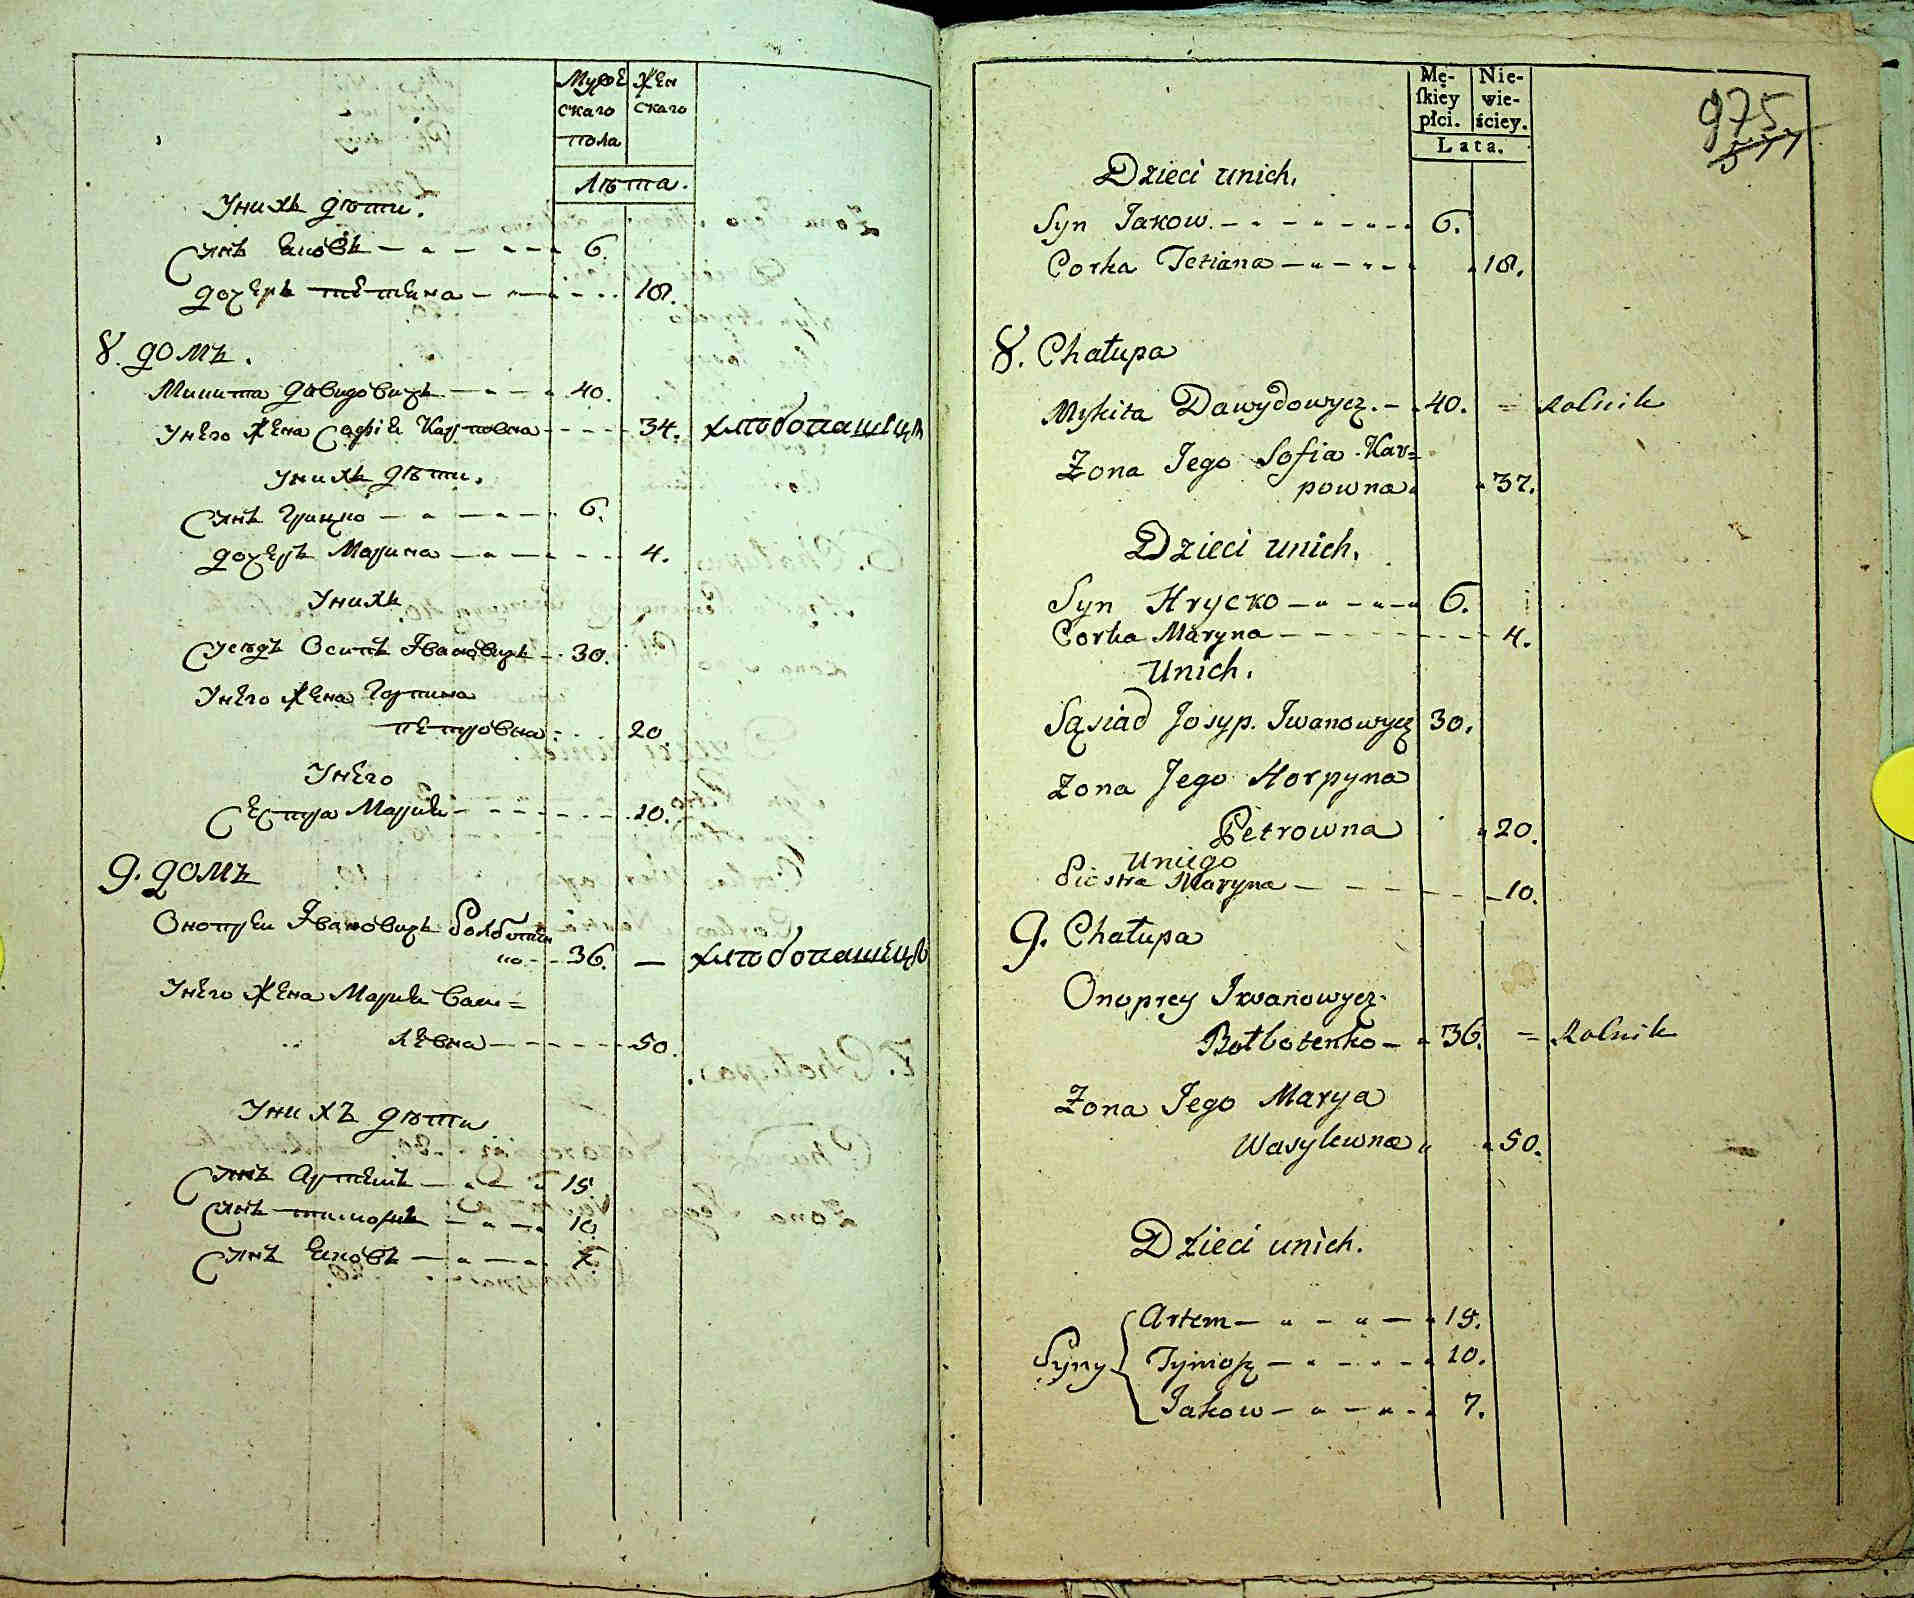 Муже Жен
скаго скаго
пола
Лѣта.
Унихъ дѣти.
Сынъ Яковъ 6.
дочерь тетяна 18.
8. домъ.
Микита Давидовичъ 40.
Унего Жена Софія Карповна 34. хлѣбопашецъ
Унихъ дѣти.
Сынъ Грицко 6.
дочерь Марина 4.
Унихъ
Сусѣдъ Осипъ Івановичъ 30.
Унего Жена Горпина
петровна 20
Унего
Сестра Мария 10.
9. домъ
Оноприи Івановичъ Болботен
ко 36. — хлѣбопашецъ
Унего Жена Мария Васи=
левна 50.
Унихъ дѣти
Сынъ Артемъ 15.
Сынъ тимофъ 10.
Сынъ Яковъ 7.
Mę- Nie-
ſkiey wie-
płci. ściey.
Lata.
975
577
Dzieci unich.
Syn Jakow. 6.
Corka Tetiana 18.
8. Chałupa
Mykita Dawydowycz. 40. = Rolnik
Żona Jego Sofia Kar=
powna 37.
Dzieci unich.
Syn Hrycko 6.
Corka Maryna 4.
Unich.
Sąsiad Josyp. Iwanowycz 30.
Żona Jego Horpyna
Petrowna 20.
Uniego
Siostra Maryna 10.
9. Chałupa
Onoprey Iwanowycz
Bołbotenko 36. = Rolnik
Żona Jego Marya
Wasylewna 50.
Dzieci unich.
Artem 15.
Syny Tymosz 10.
Jakow 7.